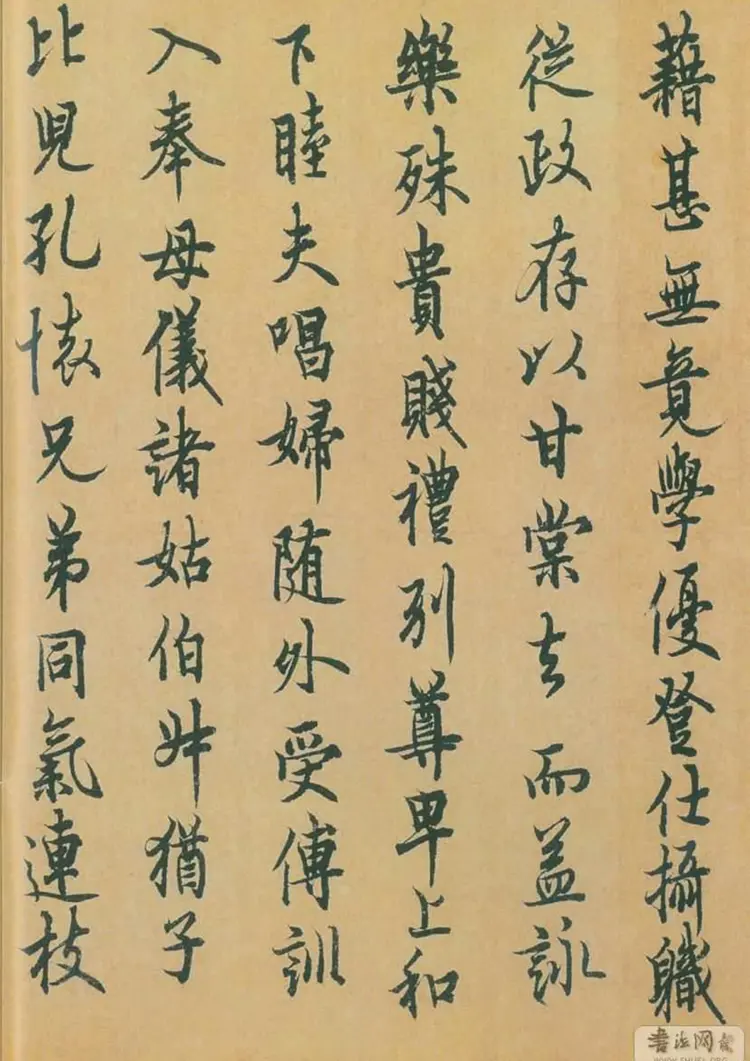 藉甚無竟學優登仕攝職
從政存以甘棠去而益詠
樂殊貴賤禮別尊卑上和
下睦夫唱婦随外受傅訓
入奉母儀諸姑伯叔猶子
比兒孔懐兄弟同氣連枝
書法网
WWW.SHUFA.ORG